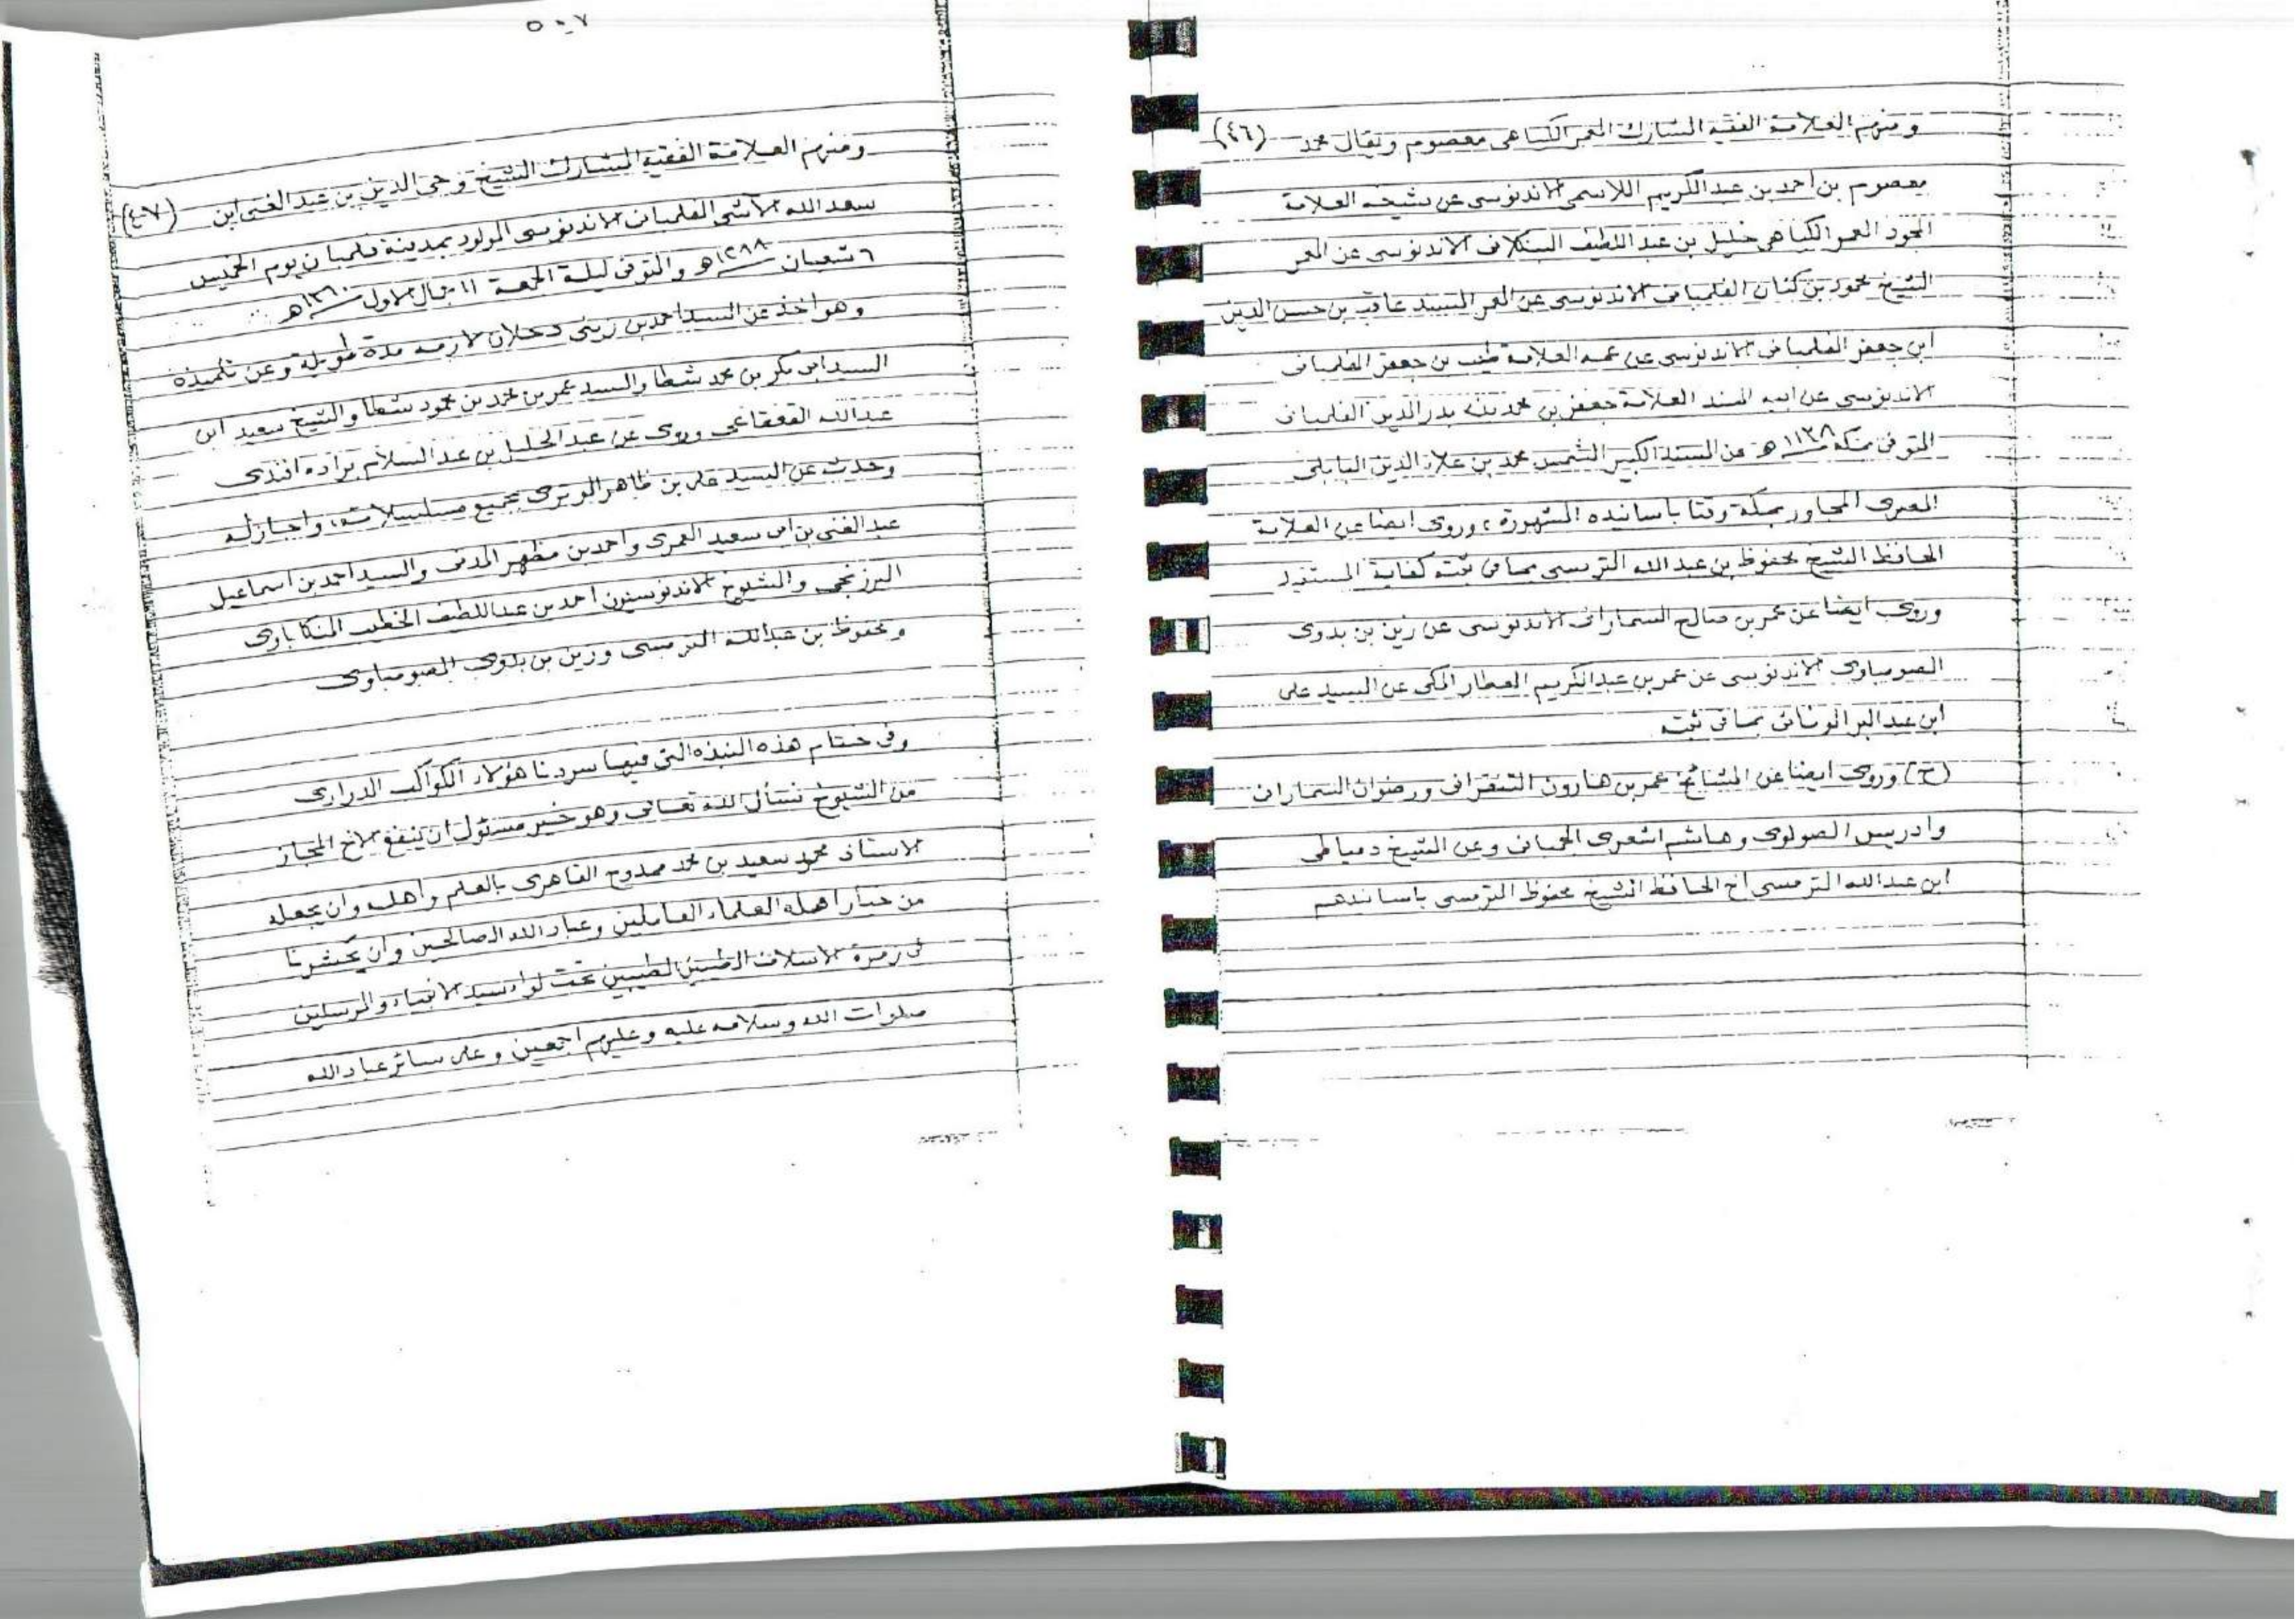 ومنهم العلامة الفقيه المشارك المعمر الكياهى معصوم ويقال محمد (٤٦)
معصوم بن احمد بن عبدالكريم اللاسمى الاندنوسى عن شيخه العلامة
المجود المعمر الكياهى خليل بن عبد اللطيف البنكلانى الاندنوسى عن المعمر
الشيخ محمود بن كنان الفلمبانى الاندنوسى عن المعمر المسند عاقب بن حسن الدين
ابن جعفر الفلمبانى الاندنوسى عن عمه العلامة طيب بن جعفر الفلمبانى
الاندنوسى عن ابيه المسند العلامة جعفر بن محمد بن بدر الدين الفلمبانى
المتوفى بمكة هـ عن المسند الكبير الشمس محمد بن علاء الدين البابلى
المصرى المجاور بمكة وقتا بأسانيده الشهورة، وروى ايضا عن العلامة
الحافظ الشيخ محفوظ بن عبد الله الترمسى بما فى ثبته كفاية المستفيد
وروى ايضا عن عمر بن صالح السمارانى الاندنوسى عن زين بن بدوى
الصومباوى الاندنوسى عن عمر بن عبدالكريم العطار المكى عن السيد على
ابن عبد البر الونائى بما فى ثبته
(ح) وروى ايضا عن المشائخ عمر بن هارون ورضوان السمارانى
وادريس الصولوى وهاشم اشعرى الجمبانى وعن الشيخ دمياطى
ابن عبدالله الترمسى اخ الحافظ الشيخ محفوظ الترمسى باسانيدهم
٥٠٧
ومنهم العلامة الفقيه المشارك الشيخ وحى الدين بن عبد الغنى ابن (٤٧)
سعد الله الآشى الفلمبانى الاندنوسى المولود بمدينة فلمبان يوم الخميس
٦ شعبان ١٢٨٨هـ والمتوفى ليلة الجمعة ١١ جمال الاول ١٣٦٠هـ
وهو اخذ عن السيد احمد بن زينى دحلان لازمه مدة طويلة وعن تلميذه
السيد ابى بكر بن محمد شطا والسيد عمر بن محمد بن محمود شطا والشيخ سعيد ابن
عبدالله القعقاعى وروى عن عبد الجليل بن عبد السلام براده افندى
وحدث عن السيد على بن ظاهر الوترى بجميع مسلسلاته، واجازله
عبد الغنى بن ابى سعيد العمرى واحمد بن مظهر المدنى والسيد احمد بن اسماعيل
البرزنجى والشيوخ الاندنوسيون احمد بن عبد اللطيف الخطيب المنكاباوى
ومحفوظ بن عبدالله الترمسى وزين بن بدوى الصومباوى
وفى ختام هذه النبذه التى فيها سردنا هؤلاء الكواكب الدرارى
من الشيوخ نسأل الله تعالى وهو خير مسئول ان ينفع الاخ المجاز
الاستاذ محمود سعيد بن محمد ممدوح القاهرى بالعلم واهله وان يجعله
من خيار اهله العلماء العاملين وعباد الله الصالحين وان يحشرنا
فى زمرة الاسلاف الطيبين تحت لواء سيد الانبياء والمرسلين
صلوات الله وسلامه عليه وعليهم اجمعين وعلى سائر عباد الله